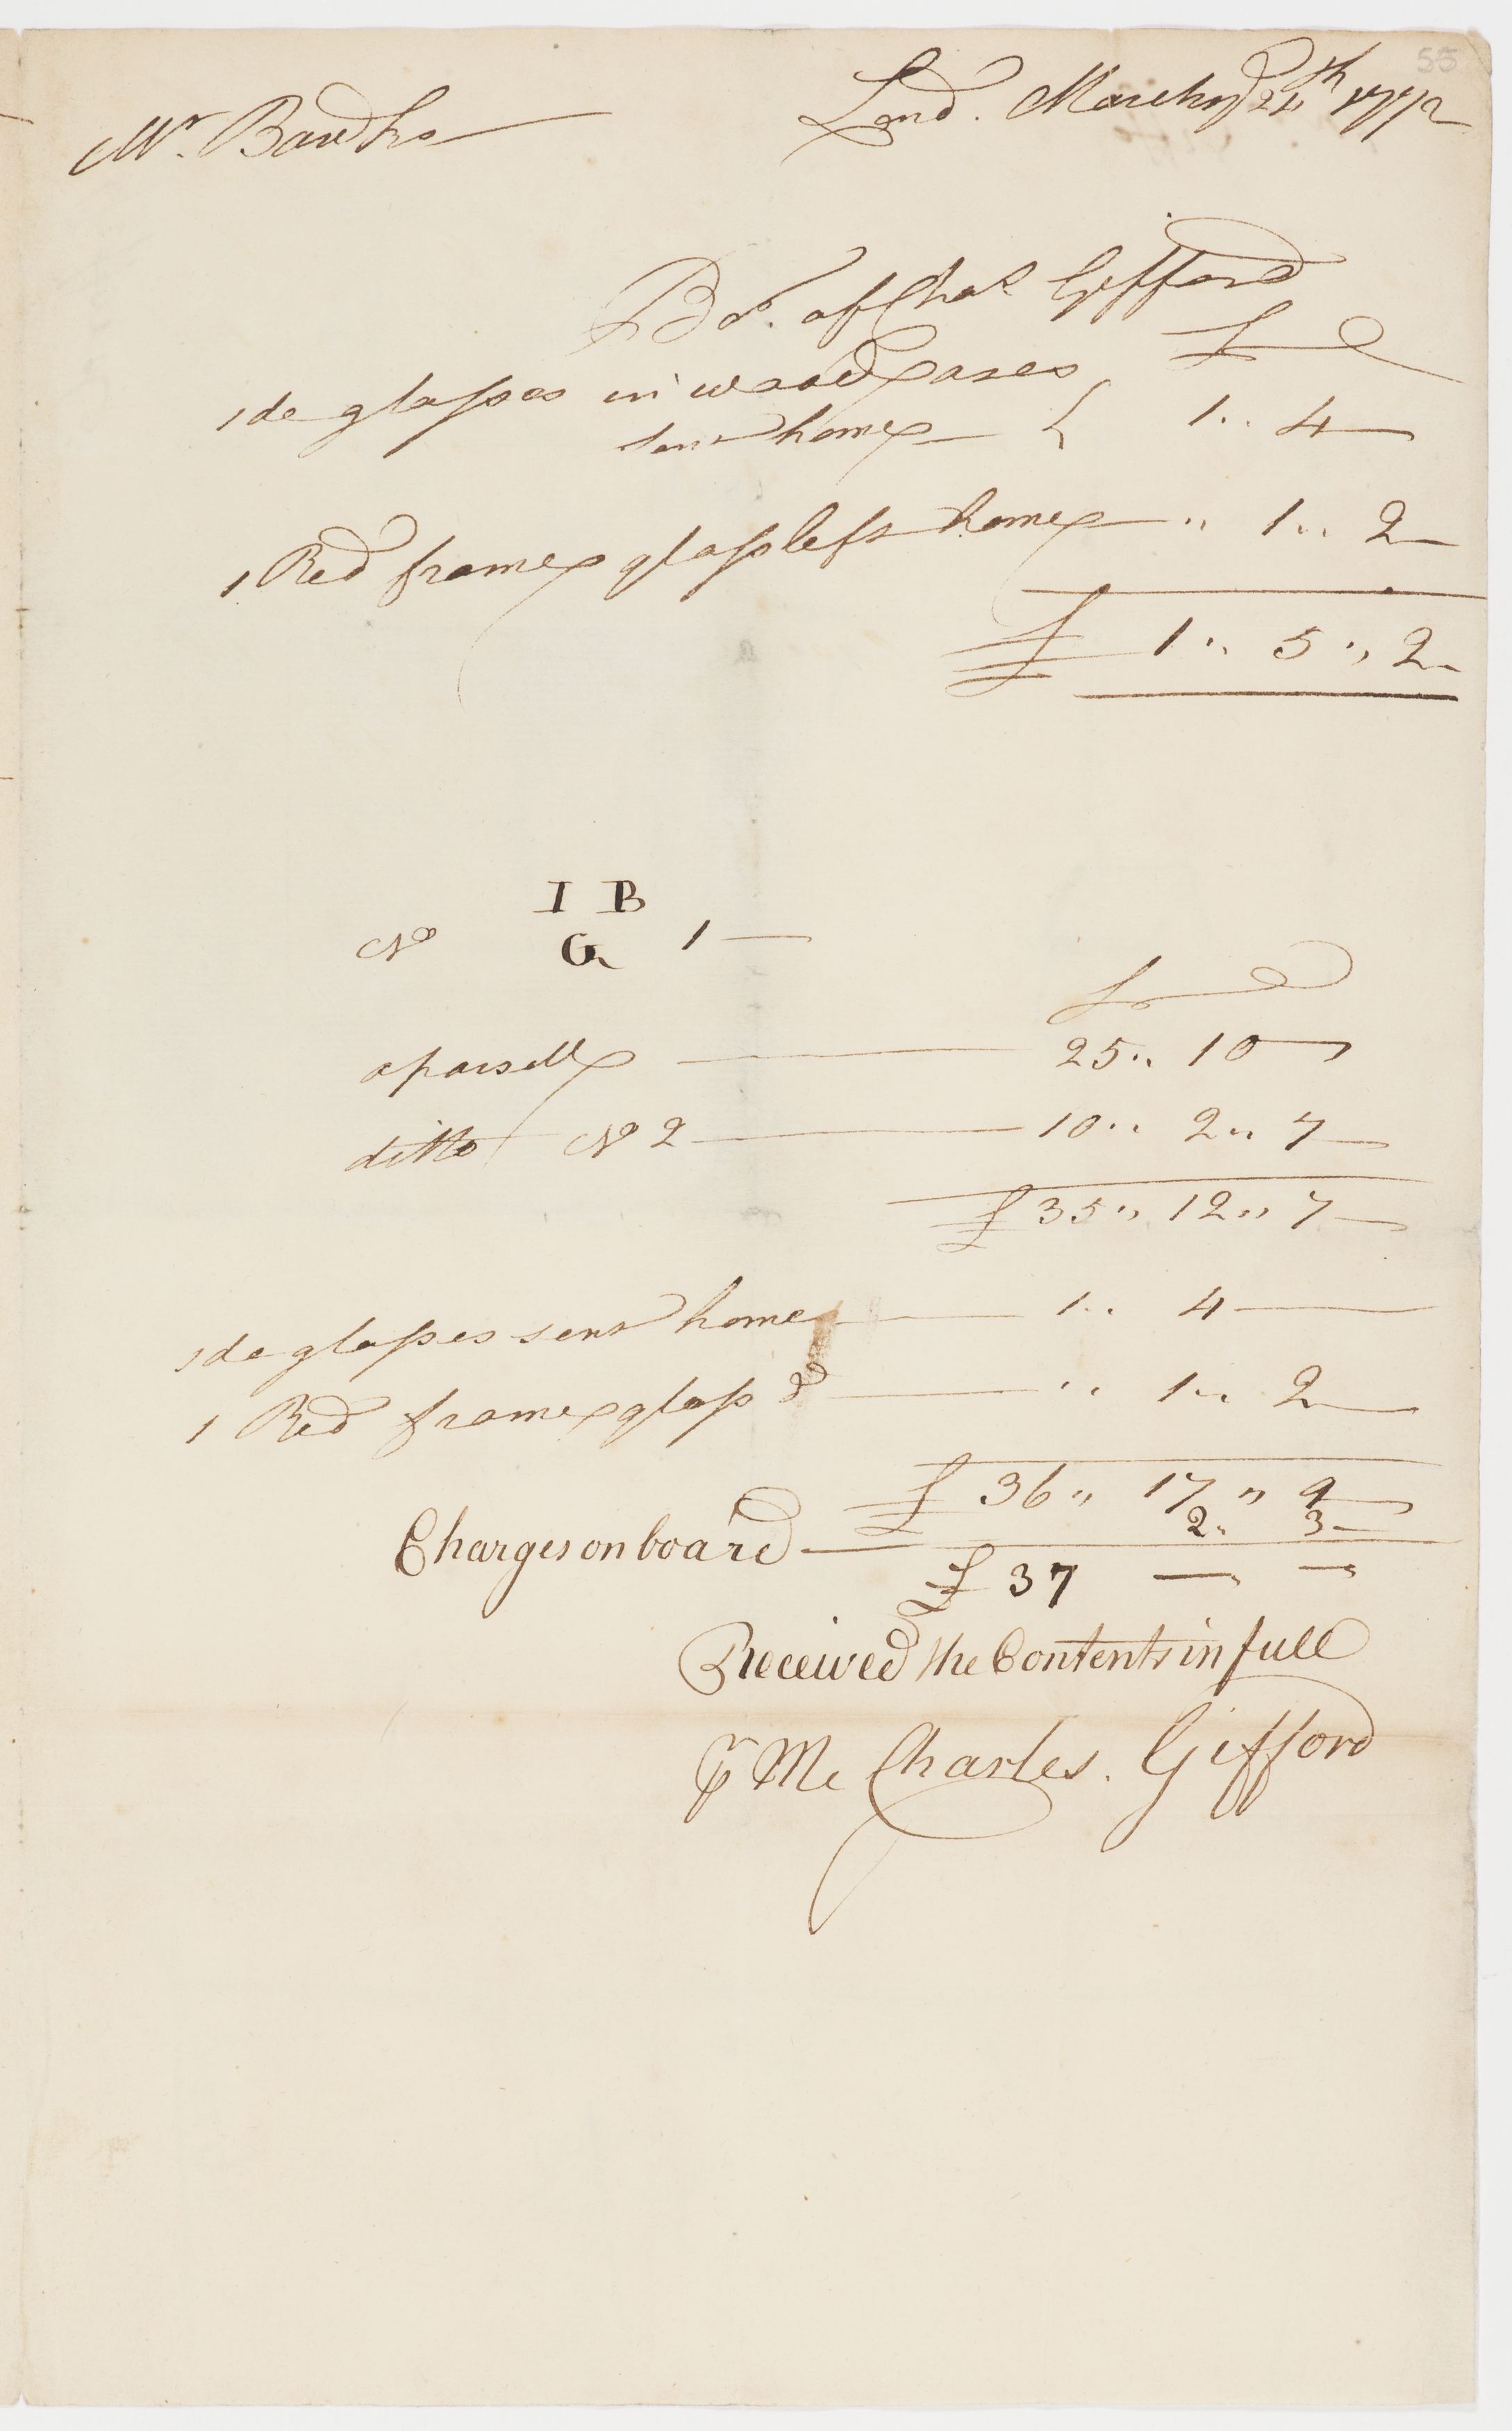 55
Lond. March ye 24th 1772
Mr. Banks
Bot. of Chas Gifford
£ d
1 do glasses in wood Cases
sent home 1 .. 4 —
1 Red frame glass left home — " 1 .. 2 —
£ 1 .. 5 .. 2 –
I B
No G 1 —
£ d
a parsell — 25 .. 10 —
ditto No 2 — 10 .. 2 .. 7 —
£ 35 .. 12 .. 7 —
1 do glasses sent home — 1 .. 4 —
1 Red frame glass do — " 1 .. 2 —
£ 36 " 17 " 9
Charges on board — 2 .. 3 –
£ 37 — —
Received the Contents in full
pr Me Charles. Gifford